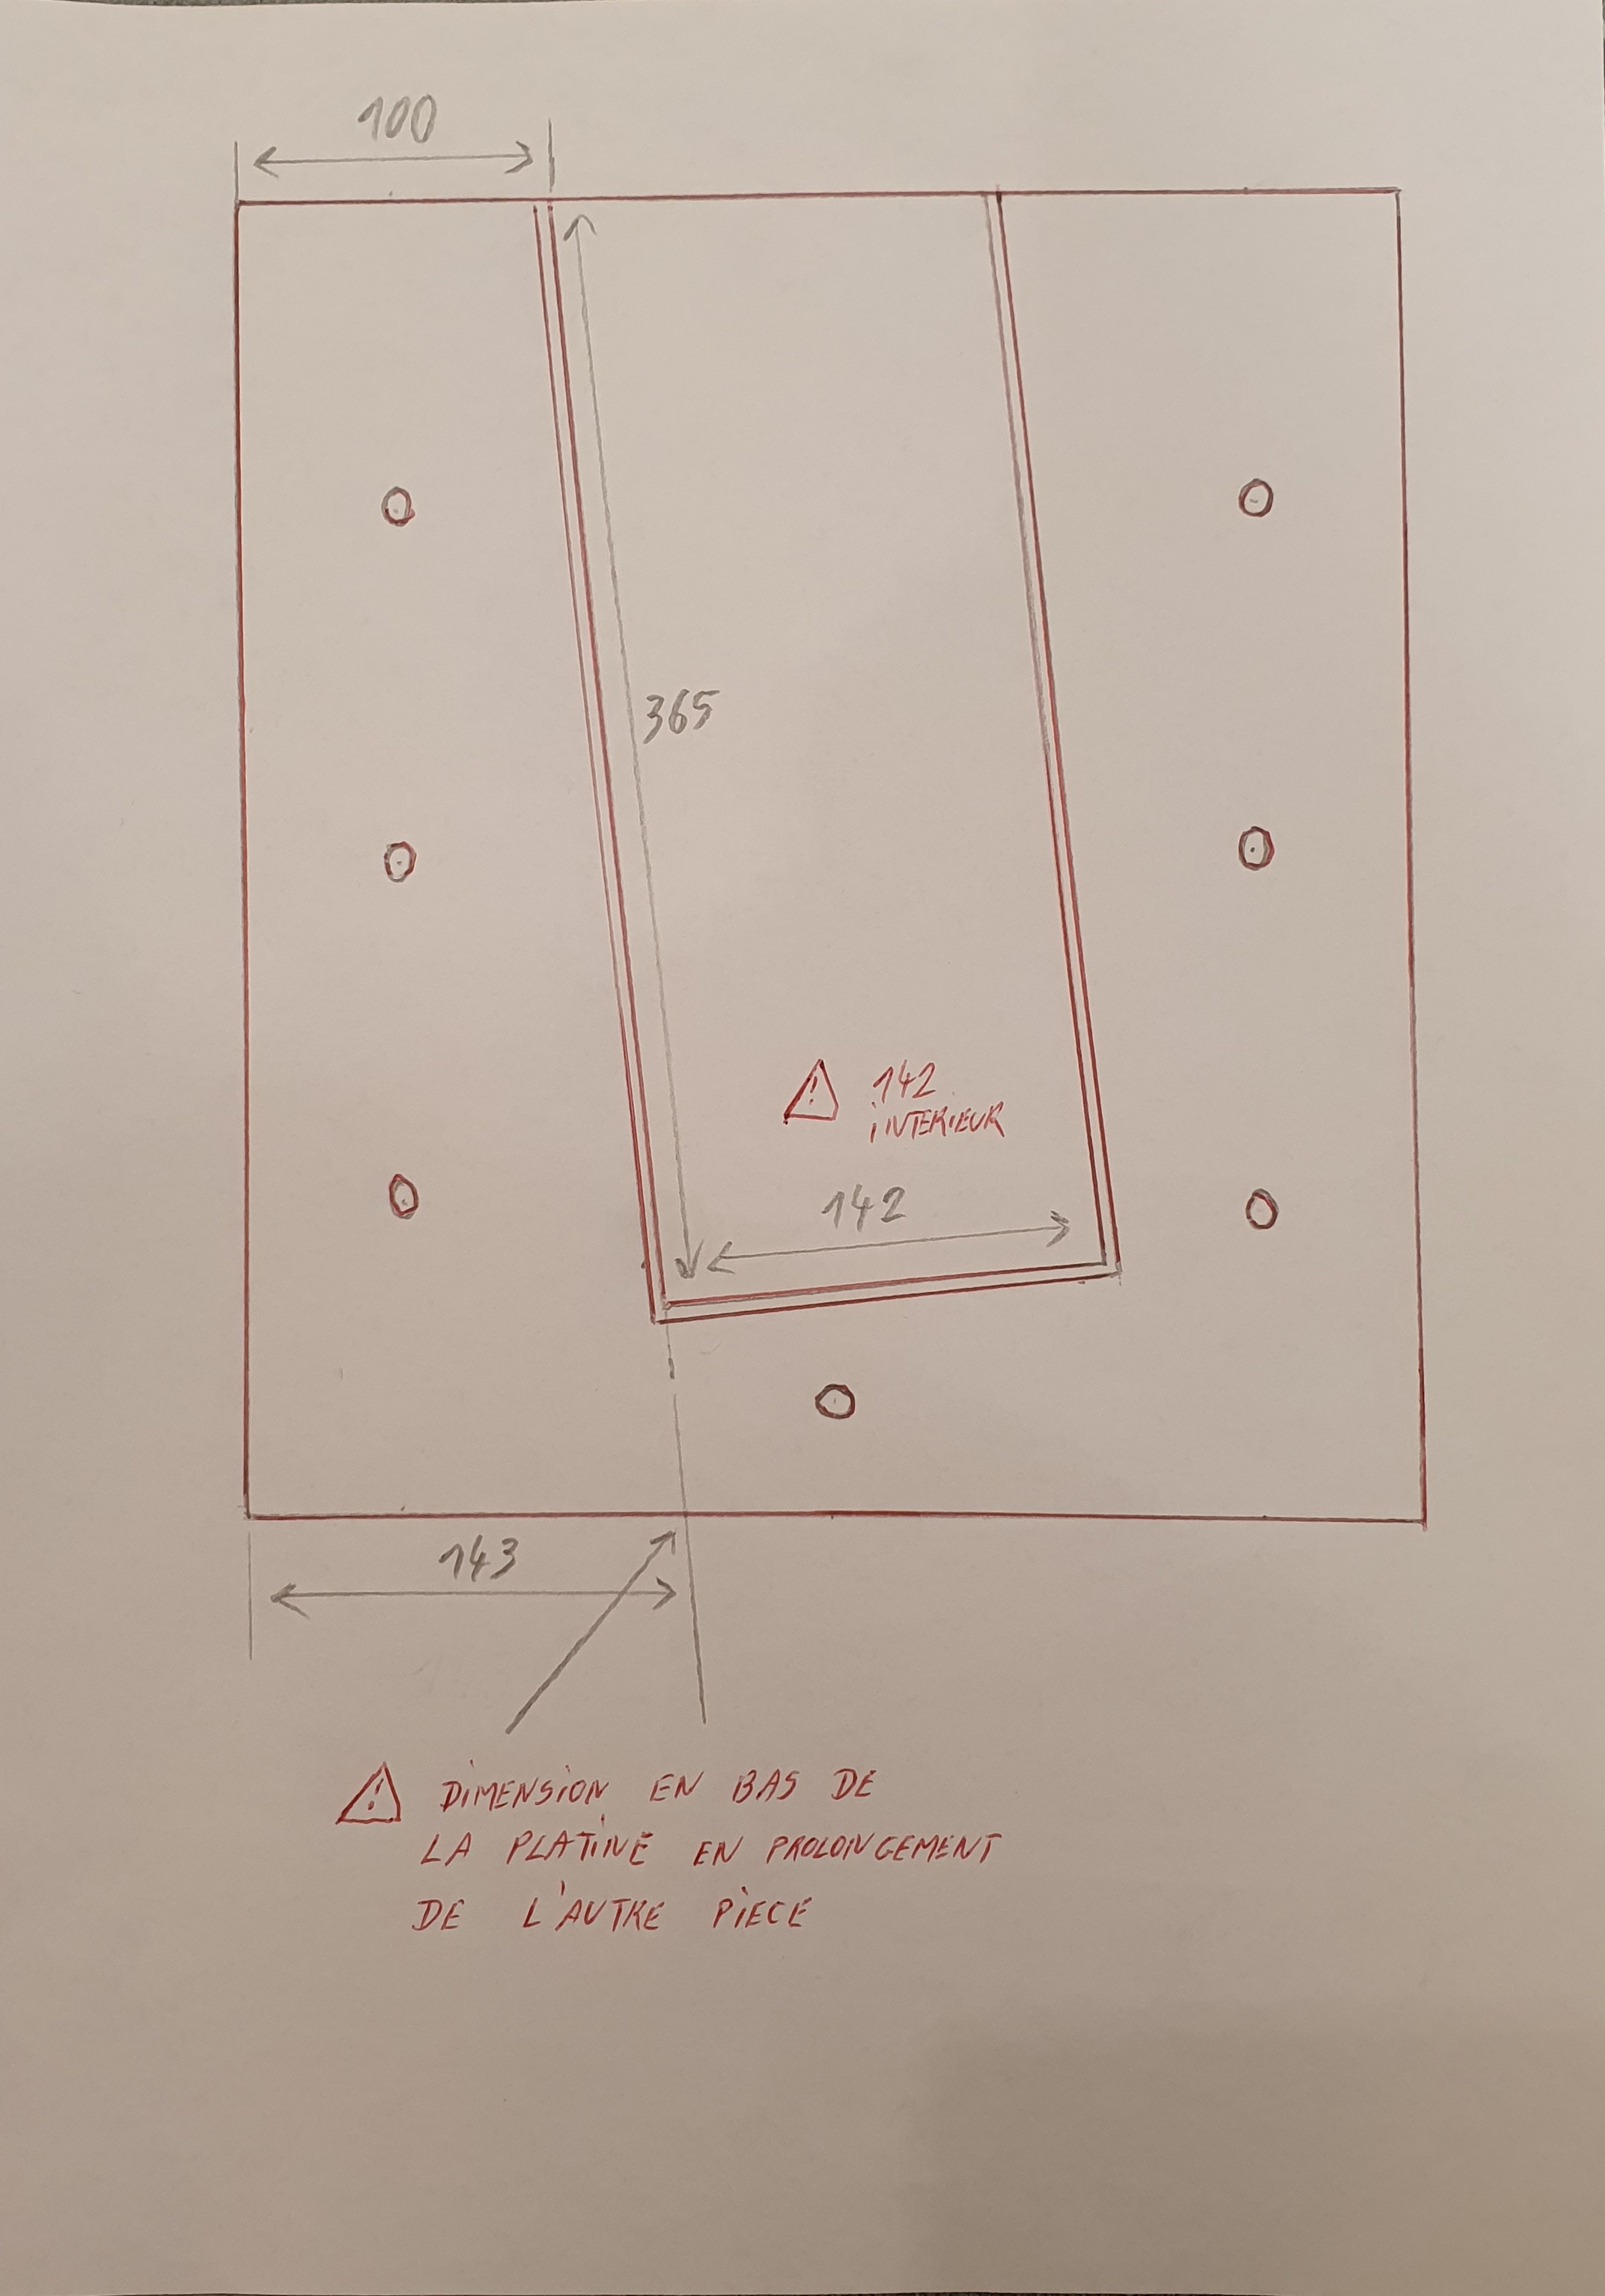 100
365
142
iNTERIEUR
142
143
DiMENSiON EN BAS DE
LA PLATiNE EN PROLONGEMENT
DE L'AUTRE PiECE